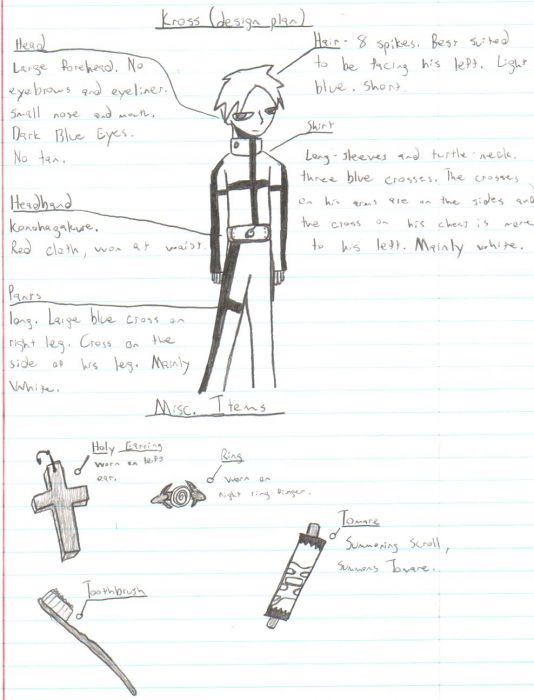 Kross (design plan)
Head
Large forehead. No
eyebrows and eyeliner.
Small nose and mouth.
Dark Blue Eyes.
No tan.
Hair - 8 spikes. Best suited
to be facing his left. Light
blue. Short.
Shirt
Long-sleeves and turtle-neck.
three blue crosses. The crosses
on his arms are on the sides and
the cross on his chest is more
to his left. Mainly white.
Headband
Konohagakure.
Red cloth, worn at waist.
Pants
long. Large blue cross on
right leg. Cross on the
side of his leg. Mainly
White.
Misc. Items
Holy Earring
worn on left
ear.
Ring
worn on
right ring finger.
Tomare
Summoning Scroll,
summons Tomare.
Toothbrush